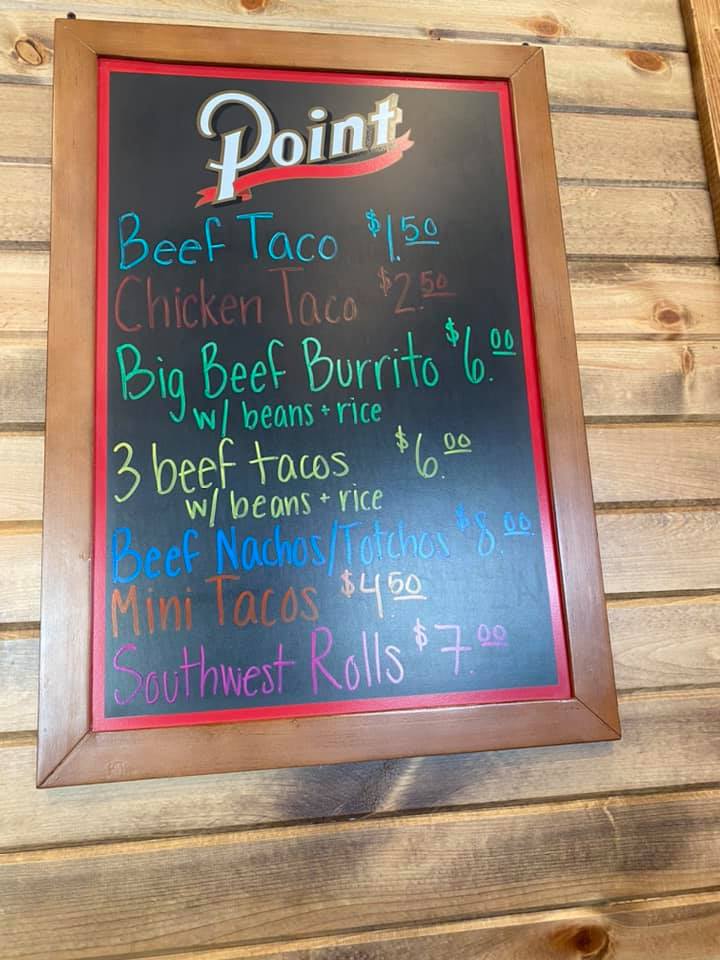 Point
Beef Taco $1.50
Chicken Taco $2.50
Big Beef Burrito $6.00
w/ beans + rice
3 beef tacos $6.00
w/ beans + rice
Beef Nachos/Totchos $8.00
Mini Tacos $4.50
Southwest Rolls $7.00